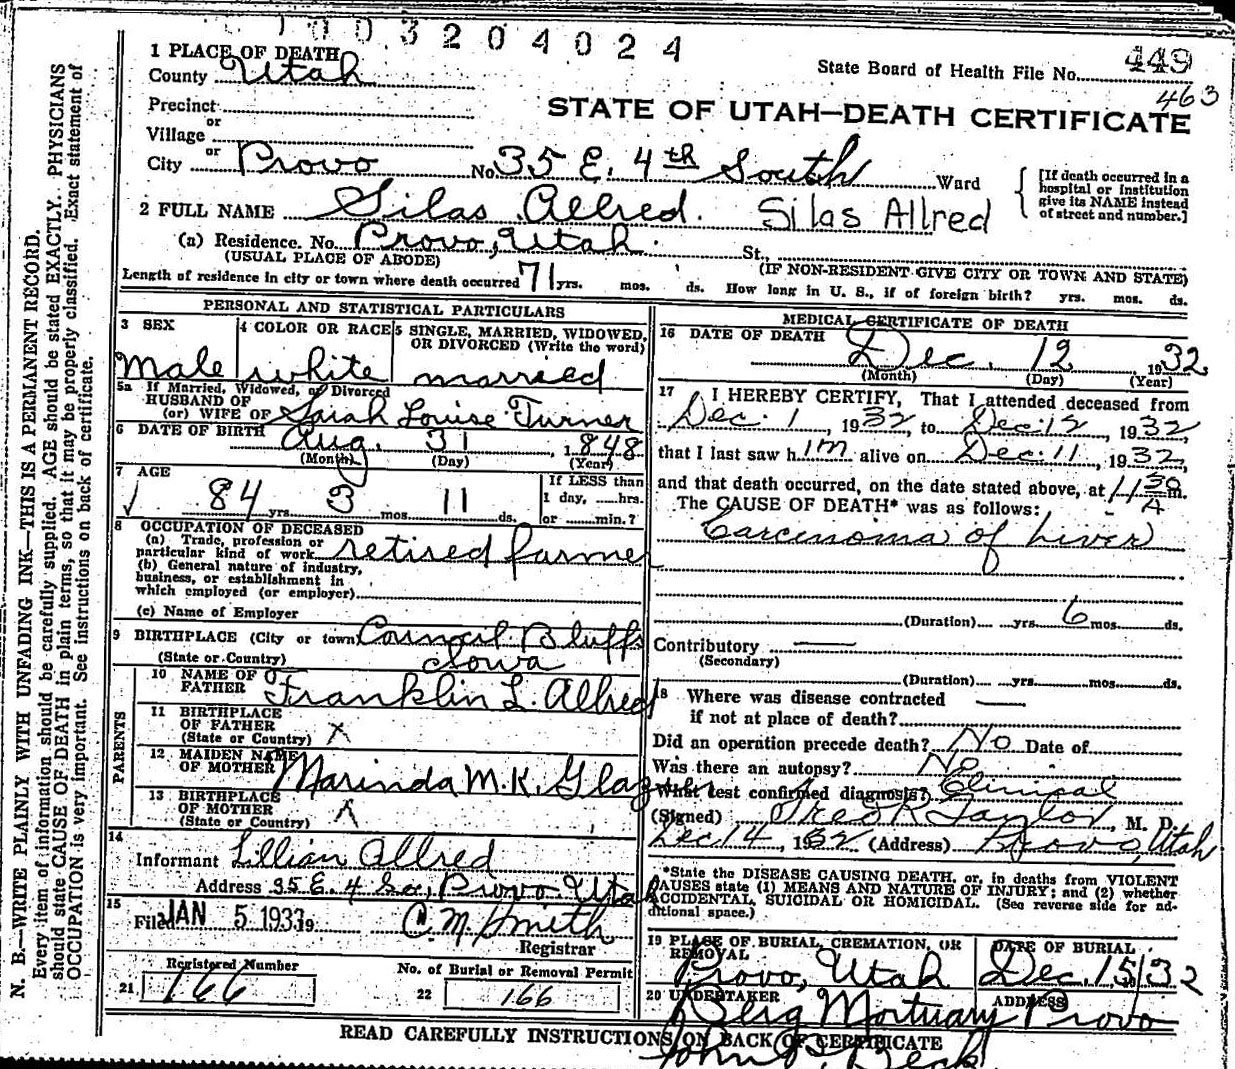 1003204024
1 PLACE OF DEATH
County Utah
State Board of Health File No. 449
463
Precinct
or
Village
or
STATE OF UTAH—DEATH CERTIFICATE
City Provo No. 35 E. 4th South Ward
[If death occurred in a hospital or institution give its NAME instead of street and number.]
2 FULL NAME Silas Allred. Silas Allred
(a) Residence. No. Provo, Utah. St.,
(USUAL PLACE OF ABODE) (IF NON-RESIDENT GIVE CITY OR TOWN AND STATE)
Length of residence in city or town where death occurred 71 yrs. mos. ds. How long in U. S., if of foreign birth? yrs. mos. ds.
PERSONAL AND STATISTICAL PARTICULARS
3 SEX
Male
4 COLOR OR RACE
white
5 SINGLE, MARRIED, WIDOWED, OR DIVORCED (Write the word)
married
5a If Married, Widowed, or Divorced
HUSBAND OF
(or) WIFE OF Sarah Louise Turner
6 DATE OF BIRTH Aug. 31, 1848
(Month) (Day) (Year)
7 AGE
84 yrs. 3 mos. 11 ds.
If LESS than
1 day, ......hrs.
or ........min.?
8 OCCUPATION OF DECEASED
(a) Trade, profession or
particular kind of work retired farmer
(b) General nature of industry,
business, or establishment in
which employed (or employer)
(c) Name of Employer
9 BIRTHPLACE (City or town) Council Bluffs
(State or Country) Iowa
PARENTS
10 NAME OF
FATHER Franklin L. Allred
11 BIRTHPLACE
OF FATHER
(State or Country) X
12 MAIDEN NAME
OF MOTHER Marinda M. K. Glaz
13 BIRTHPLACE
OF MOTHER
(State or Country) X
14
Informant Lillian Allred
Address 35 E. 4 So., Provo Utah
15
Filed JAN 5 1933 19 C. M. Smith
Registrar
21 Registered Number
166
22 No. of Burial or Removal Permit
166
MEDICAL CERTIFICATE OF DEATH
16 DATE OF DEATH
Dec. 12 1932
(Month) (Day) (Year)
17 I HEREBY CERTIFY, That I attended deceased from
Dec. 1, 1932, to Dec. 12, 1932,
that I last saw him alive on Dec. 11, 1932,
and that death occurred, on the date stated above, at 11 30 A m.
The CAUSE OF DEATH* was as follows:
Carcinoma of Liver
(Duration) yrs. 6 mos. ds.
Contributory
(Secondary)
(Duration) yrs. mos. ds.
18 Where was disease contracted
if not at place of death?
Did an operation precede death? No Date of
Was there an autopsy? No
What test confirmed diagnosis? Clinical
(Signed) Fred R Taylor, M. D.
Dec 14, 1932 (Address) Provo, Utah
*State the DISEASE CAUSING DEATH, or, in deaths from VIOLENT
CAUSES state (1) MEANS AND NATURE OF INJURY; and (2) whether
ACCIDENTAL, SUICIDAL OR HOMICIDAL. (See reverse side for additional space.)
19 PLACE OF BURIAL, CREMATION, OR REMOVAL
Provo, Utah
DATE OF BURIAL
Dec. 15, 32
20 UNDERTAKER ADDRESS
Berg Mortuary Provo
READ CAREFULLY INSTRUCTIONS ON BACK OF CERTIFICATE
N. B.—WRITE PLAINLY WITH UNFADING INK—THIS IS A PERMANENT RECORD.
Every item of information should be carefully supplied. AGE should be stated EXACTLY. PHYSICIANS
should state CAUSE OF DEATH in plain terms, so that it may be properly classified. Exact statement of
OCCUPATION is very important. See instructions on back of certificate.